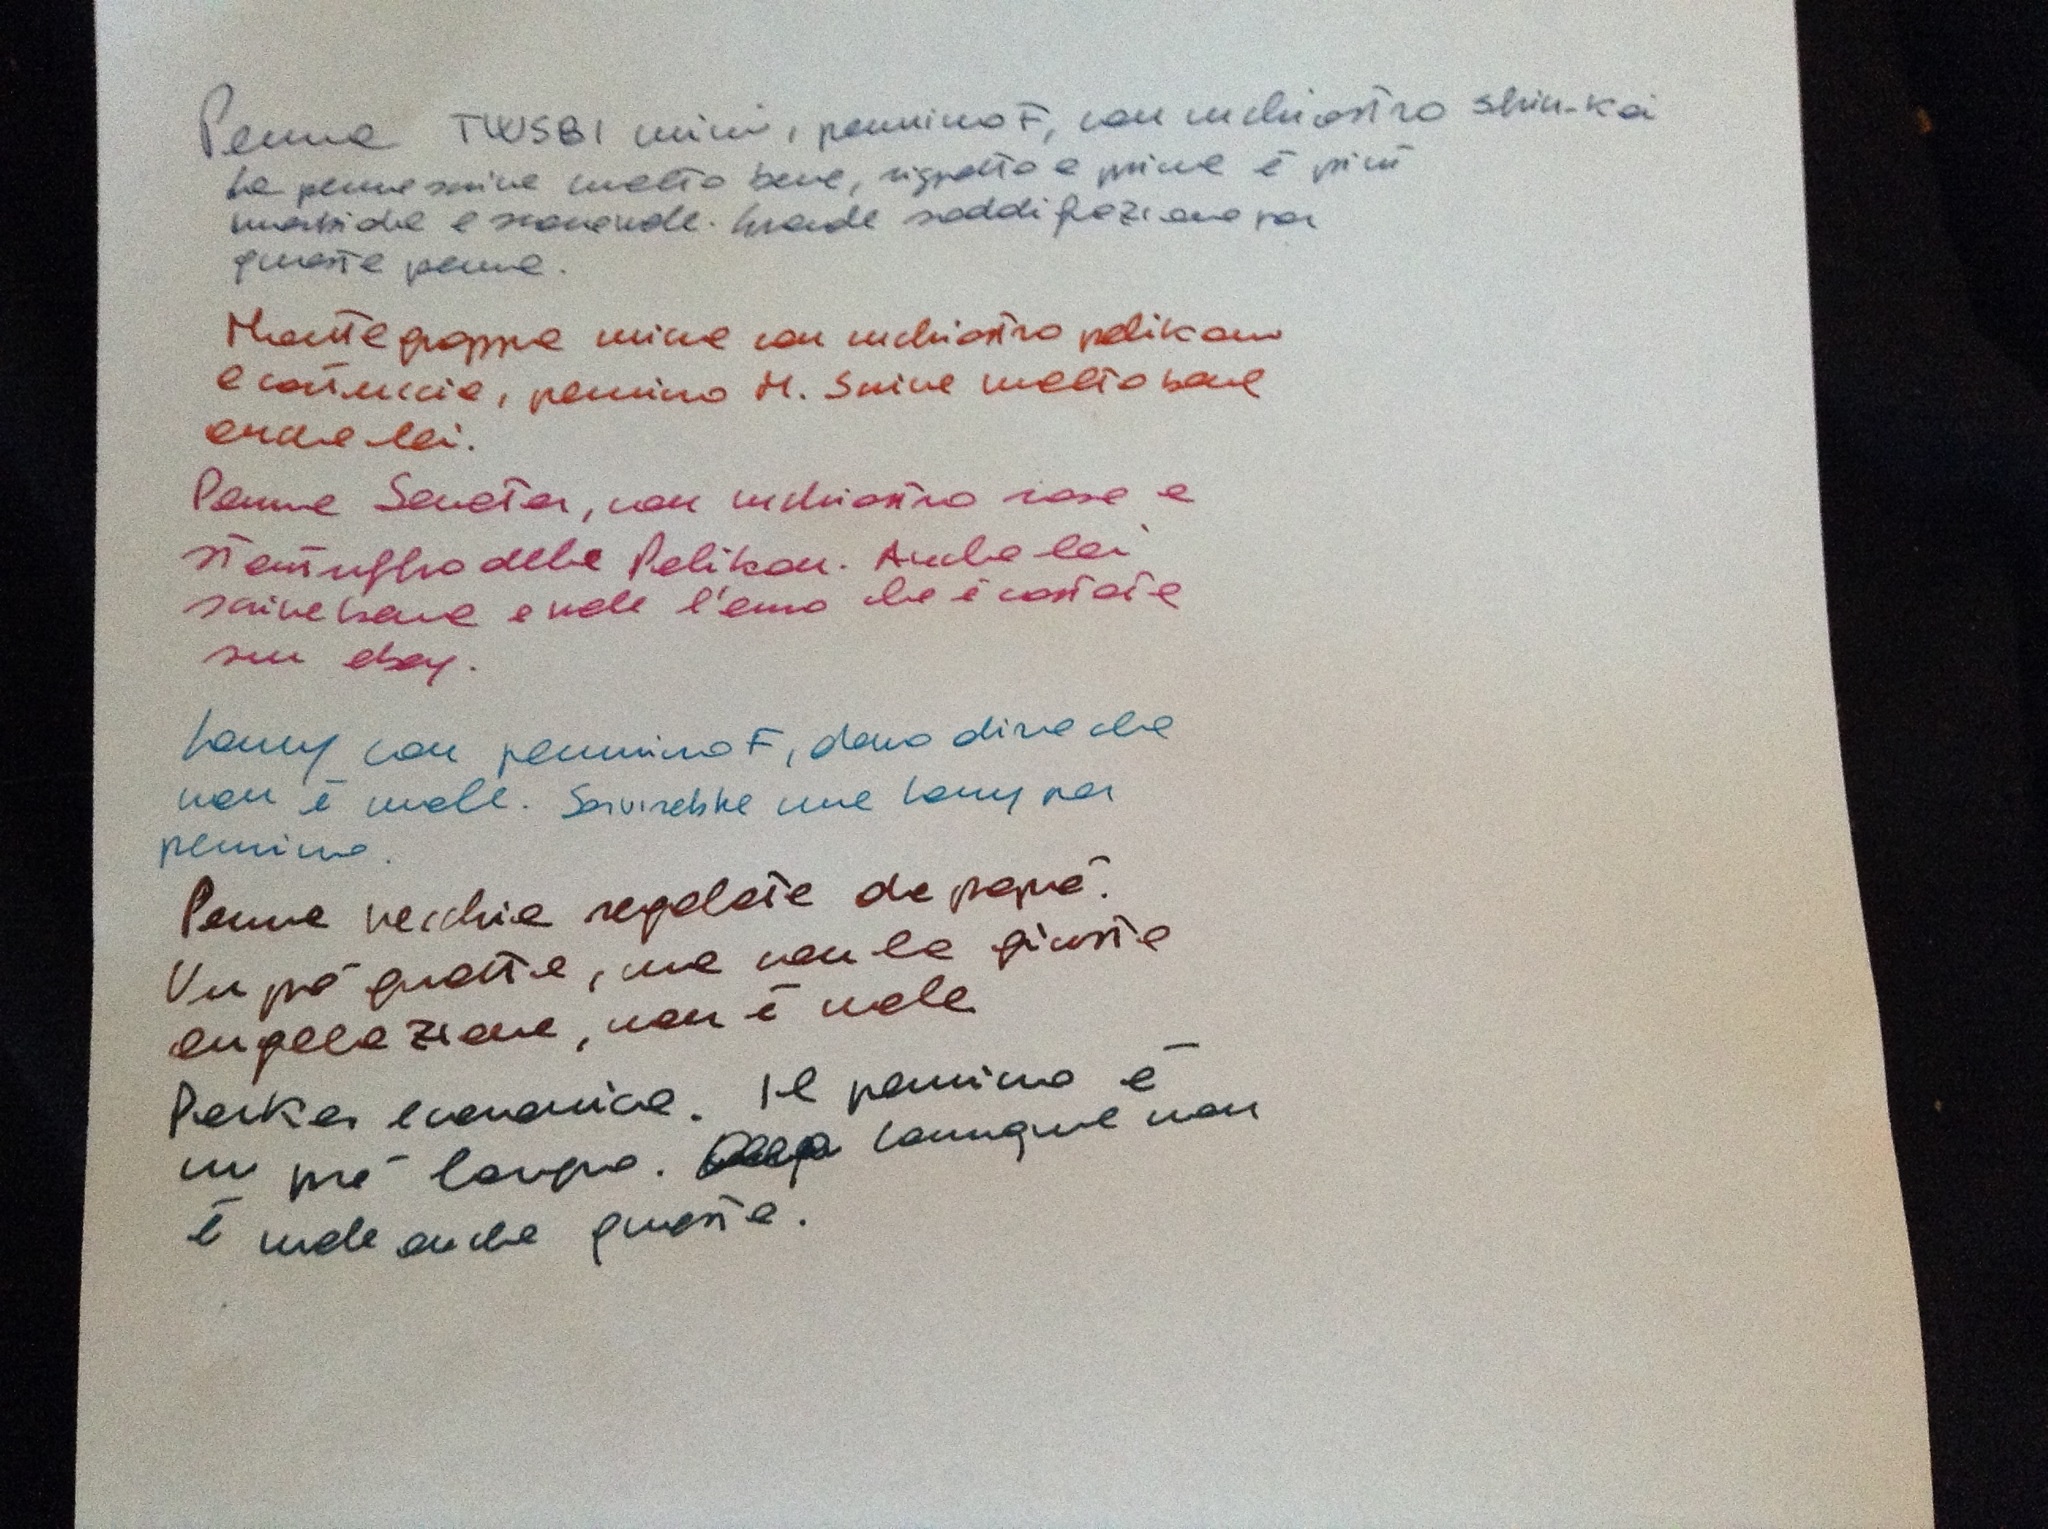 Penna TWSBI mini, pennino F, con inchiostro shin-kai
La penna scrive molto bene, rispetto a prima è più
morbida e scorrevole. Grande soddisfazione per
questa penna.
Montegrappa mina con inchiostro pelikan
a cartuccia, pennino M. Scrive molto bene
anche lei.
Penna Senator, con inchiostro rosa e
stantuffo della Pelikan. Anche lei
scrive bene e vale l'euro che è costata
su ebay.
Lamy con pennino F, devo dire che
non è male. Servirebbe una Lamy per
pennino.
Penna vecchia regalata da papà.
Un pò gratta, ma con la giusta
angolazione, non è male
Parker economica. Il pennino è
un pò largo. Comunque non
è male anche questa.